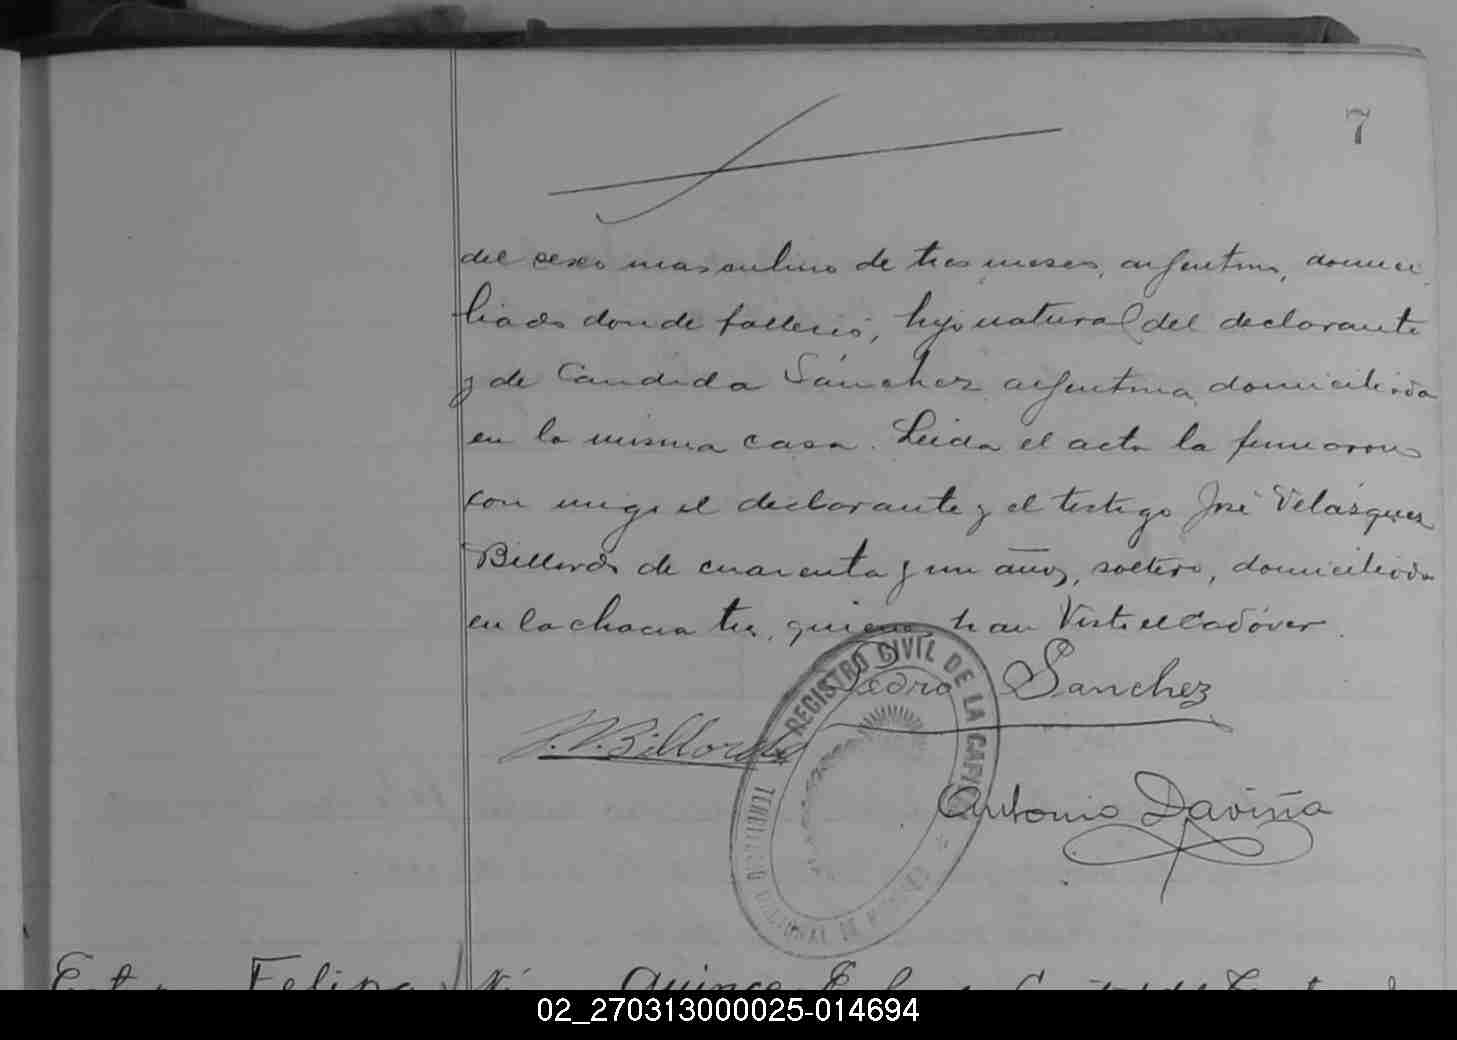 7
del sexo masculino de tres meses, argentino, domici
liado donde falleció, hijo natural del declarante
y de Candida Sánchez argentina domiciliada
en la misma casa. Leida el acta la firmaron
con migo el declarante y el testigo José Velásquez
Billordo de cuarenta y un años, soltero, domiciliado
en la chacra tres, quienes han visto el cadáver.
Pedro Sanchez
J. V. Billordo
Antonio Daviña
REGISTRO CIVIL DE LA CAPITAL
TERRITORIO NACIONAL DE MISIONES
Felipa Quince
02_270313000025-014694